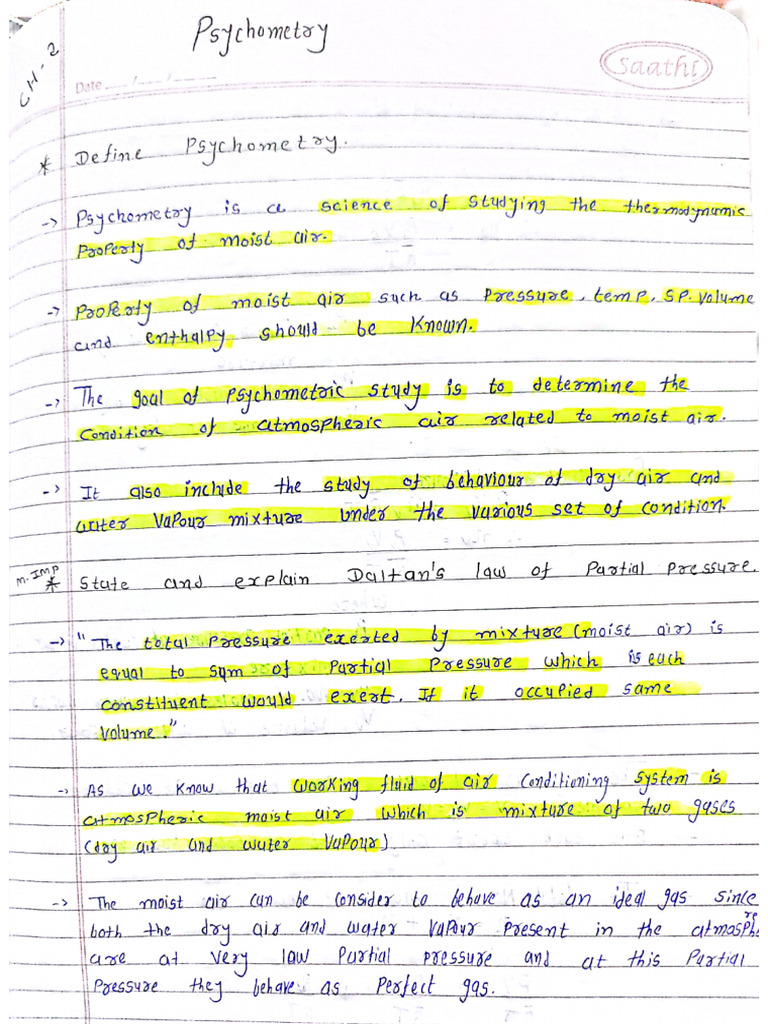 CH-2
Psychometry
Saathi
Date ___/___/___
* Define Psychometry.
-> Psychometry is a science of studying the thermodynamic
Property of moist air.
-> Property of moist air such as Pressure, temp, SP. Volume
and enthalpy should be known.
-> The goal of Psychometric study is to determine the
Condition of atmospheric air related to moist air.
-> It also include the study of behaviour of dry air and
water vapour mixture under the various set of condition.
M. IMP
* State and explain Daltan's law of Partial Pressure.
-> "The total Pressure exerted by mixture (moist air) is
equal to sum of Partial Pressure which is each
constituent would exert. If it occupied same
Volume."
-> As we know that working fluid of air Conditioning system is
atmospheric moist air which is mixture of two gases
(dry air and water vapour)
-> The moist air can be consider to behave as an ideal gas since
both the dry air and water vapour Present in the atmosphere
are at very law Partial pressure and at this Partial
Pressure they behave as Perfect gas.